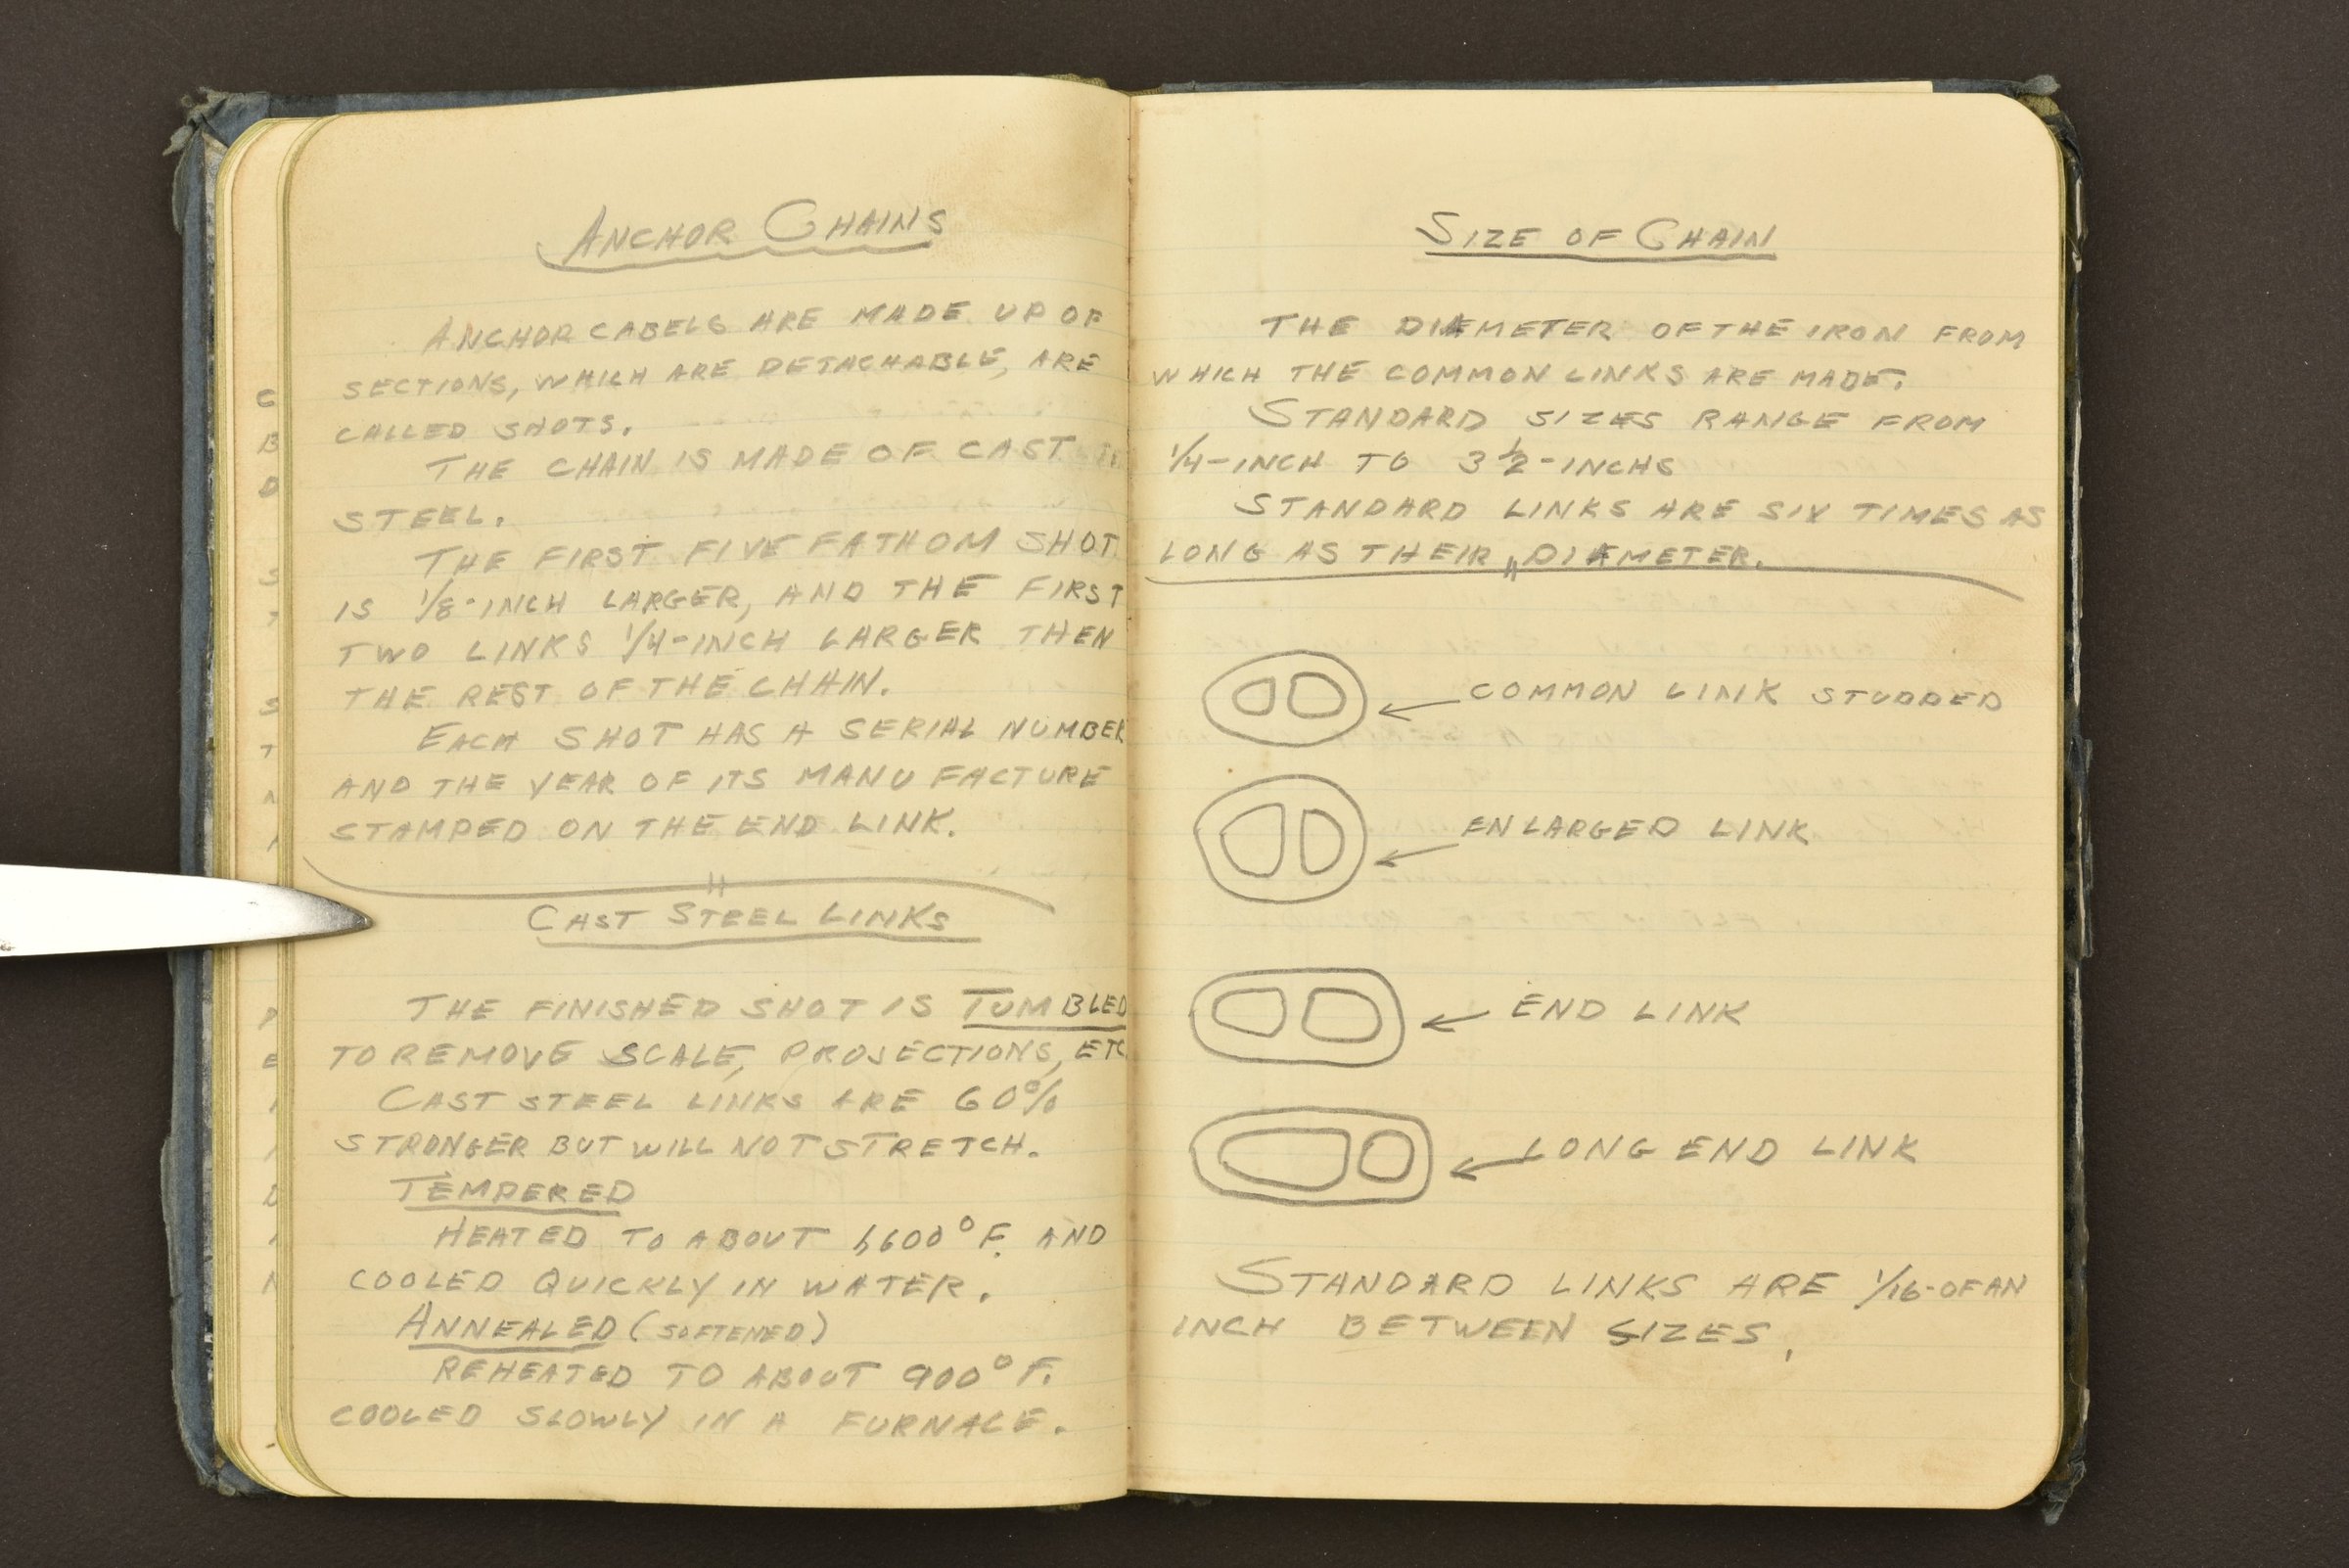 ANCHOR CHAINS
ANCHOR CABELS ARE MADE UP OF
SECTIONS, WHICH ARE DETACHABLE, ARE
CALLED SHOTS.
THE CHAIN IS MADE OF CAST
STEEL.
THE FIRST FIVE FATHOM SHOT
IS 1/8-INCH LARGER, AND THE FIRST
TWO LINKS 1/4-INCH LARGER THEN
THE REST OF THE CHAIN.
EACH SHOT HAS A SERIAL NUMBER
AND THE YEAR OF ITS MANU FACTURE
STAMPED ON THE END LINK.
CAST STEEL LINKS
THE FINISHED SHOT IS TUMBLED
TO REMOVE SCALE, PROJECTIONS, ETC
CAST STEEL LINKS ARE 60%
STRONGER BUT WILL NOT STRETCH.
TEMPERED
HEATED TO ABOUT °F. AND
COOLED QUICKLY IN WATER.
ANNEALED (SOFTENED)
REHEATED TO ABOUT 900°F.
COOLED SLOWLY IN A FURNACE.
SIZE OF CHAIN
THE DIAMETER OF THE IRON FROM
WHICH THE COMMON LINKS ARE MADE.
STANDARD SIZES RANGE FROM
1/4-INCH TO 3 1/2-INCHS
STANDARD LINKS ARE SIX TIMES AS
LONG AS THEIR DIAMETER.
COMMON LINK STUDDED
ENLARGED LINK
END LINK
LONG END LINK
STANDARD LINKS ARE 1/16-OF AN
INCH BETWEEN SIZES.